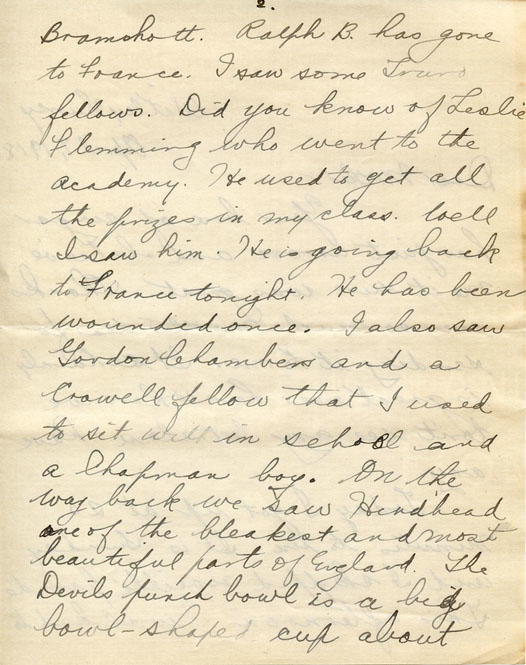 2.
Bramshott. Ralph B. has gone
to France. I saw some Truro
fellows. Did you know of Leslie
Flemming who went to the
academy. He used to get all
the prizes in my class. Well
I saw him. He is going back
to France tonight. He has been
wounded once. I also saw
Gordon Chambers and a
Crowell fellow that I used
to sit with in school and
a Chapman boy. On the
way back we saw Hindhead
one of the bleakest and most
beautiful parts of England. The
Devils punch bowl is a big
bowl-shaped cup about